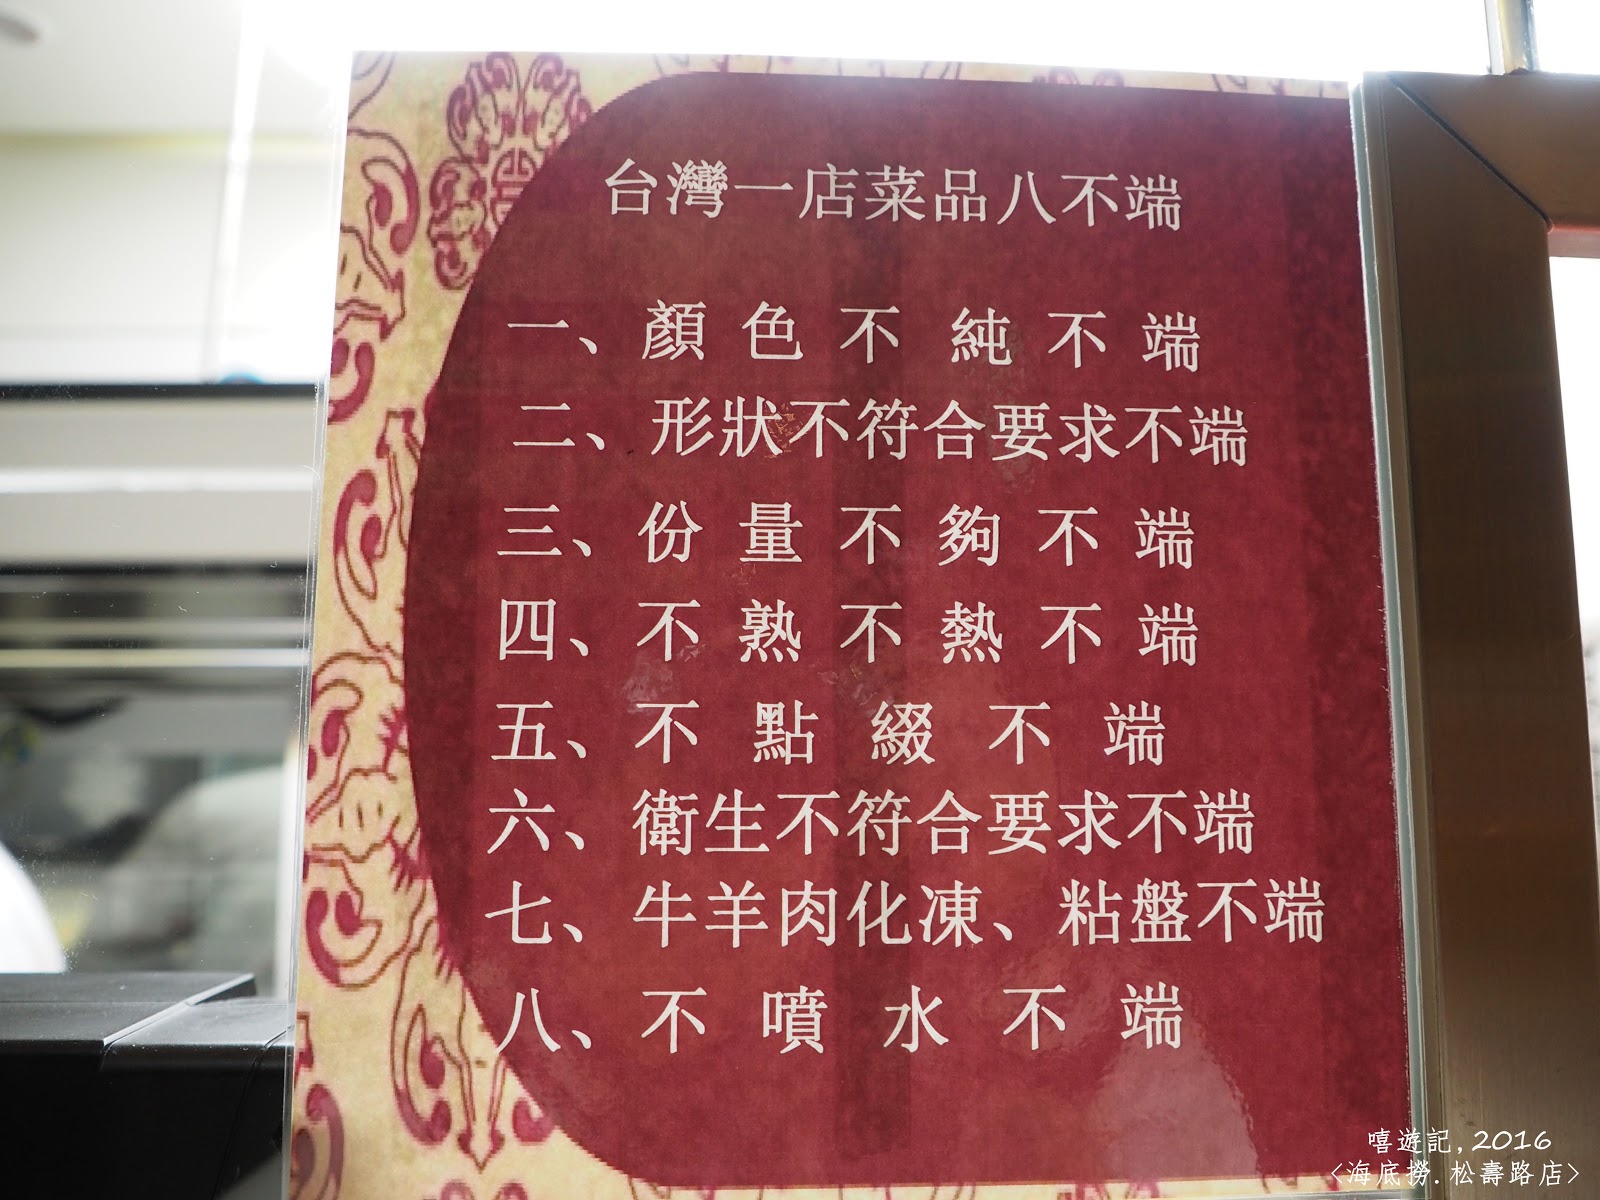 台灣一店菜品八不端
一、顏色不純不端
二、形狀不符合要求不端
三、份量不夠不端
四、不熟不熱不端
五、不點綴不端
六、衛生不符合要求不端
七、牛羊肉化凍、粘盤不端
八、不噴水不端
嘻遊記, 2016
<海底撈.松壽路店>